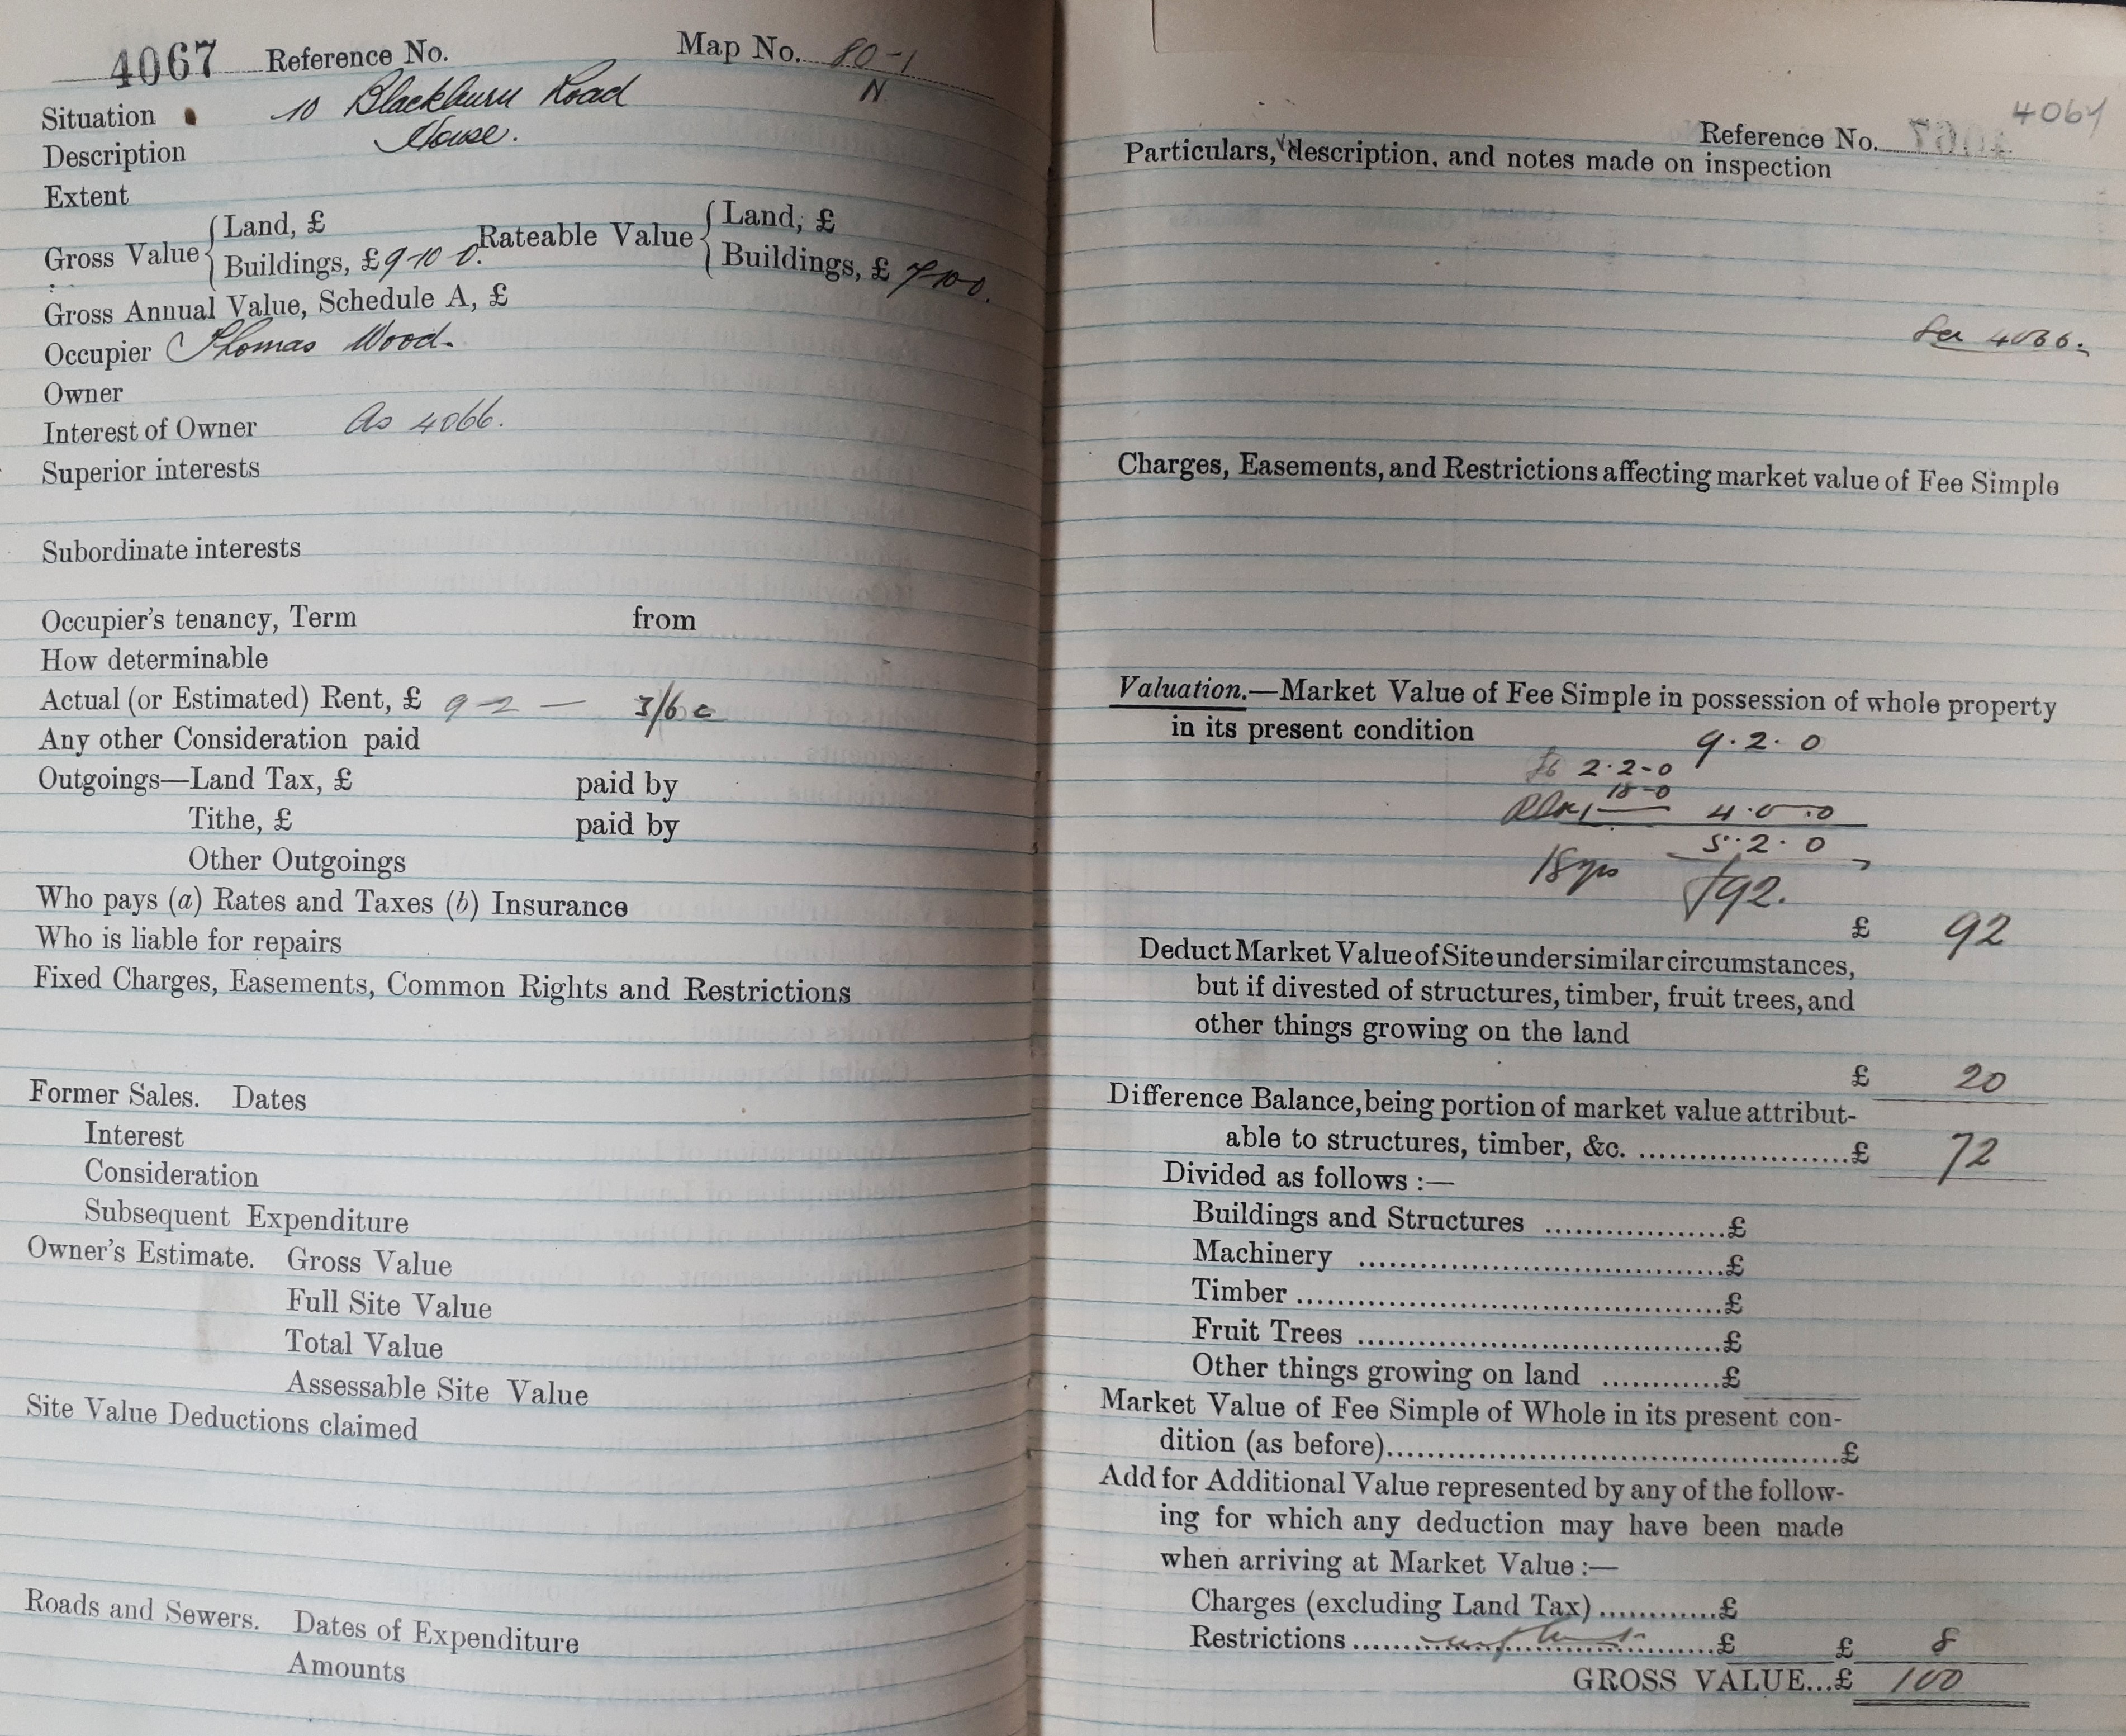 4067 Reference No. Map No. 80-1
N
Situation 10 Blackburn Road
Description House.
Extent
Gross Value { Land, £
Buildings, £ 9-10-0. Rateable Value { Land, £
Buildings, £ 7-10-0.
Gross Annual Value, Schedule A, £
Occupier Thomas Wood.
Owner
Interest of Owner As 4066.
Superior interests
Subordinate interests
Occupier's tenancy, Term from
How determinable
Actual (or Estimated) Rent, £ 9-2 — 3/6
Any other Consideration paid
Outgoings—Land Tax, £ paid by
Tithe, £ paid by
Other Outgoings
Who pays (a) Rates and Taxes (b) Insurance
Who is liable for repairs
Fixed Charges, Easements, Common Rights and Restrictions
Former Sales. Dates
Interest
Consideration
Subsequent Expenditure
Owner's Estimate. Gross Value
Full Site Value
Total Value
Assessable Site Value
Site Value Deductions claimed
Roads and Sewers. Dates of Expenditure
Amounts
4067
Reference No.
Particulars, description, and notes made on inspection
See 4066.
Charges, Easements, and Restrictions affecting market value of Fee Simple
Valuation.—Market Value of Fee Simple in possession of whole property
in its present condition
9.2.0
2.2-0
18-0
4.0.0
5.2.0
18 yrs £92.
£ 92
Deduct Market Value of Site under similar circumstances,
but if divested of structures, timber, fruit trees, and
other things growing on the land
£ 20
Difference Balance, being portion of market value attribut-
able to structures, timber, &c. ......................£ 72
Divided as follows :—
Buildings and Structures ..................£
Machinery ......................................£
Timber ............................................£
Fruit Trees .....................................£
Other things growing on land ............£
Market Value of Fee Simple of Whole in its present con-
dition (as before)................................................£
Add for Additional Value represented by any of the follow-
ing for which any deduction may have been made
when arriving at Market Value :—
Charges (excluding Land Tax) ............£
Restrictions ......................................£ £ 8
GROSS VALUE...£ 100